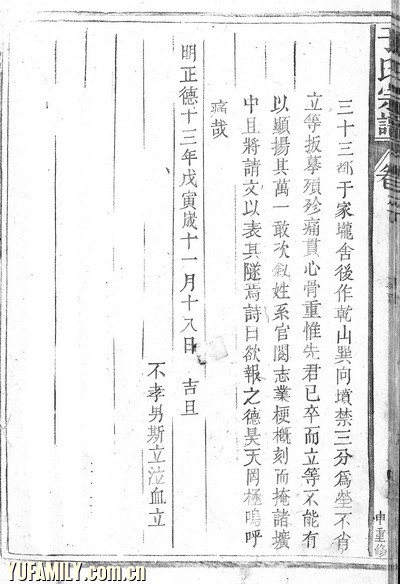 于氏宗譜
卷
三十三都于家壠舍後作乾山巽向墳禁三分爲塋不肖
立等扳摹殞殄痛貫心骨重惟先君已卒而立等不能有
以顯揚其萬一敢次敘姓系官閥志業梗概刻而掩諸壙
中且將請文以表其隧焉詩曰欲報之德昊天罔極嗚呼
痛哉
明正德十三年戊寅歲十一月十八日 吉旦
不孝男斯立泣血立
申重修
YUFAMILY.com.cn
YUFAMILY.com.cn